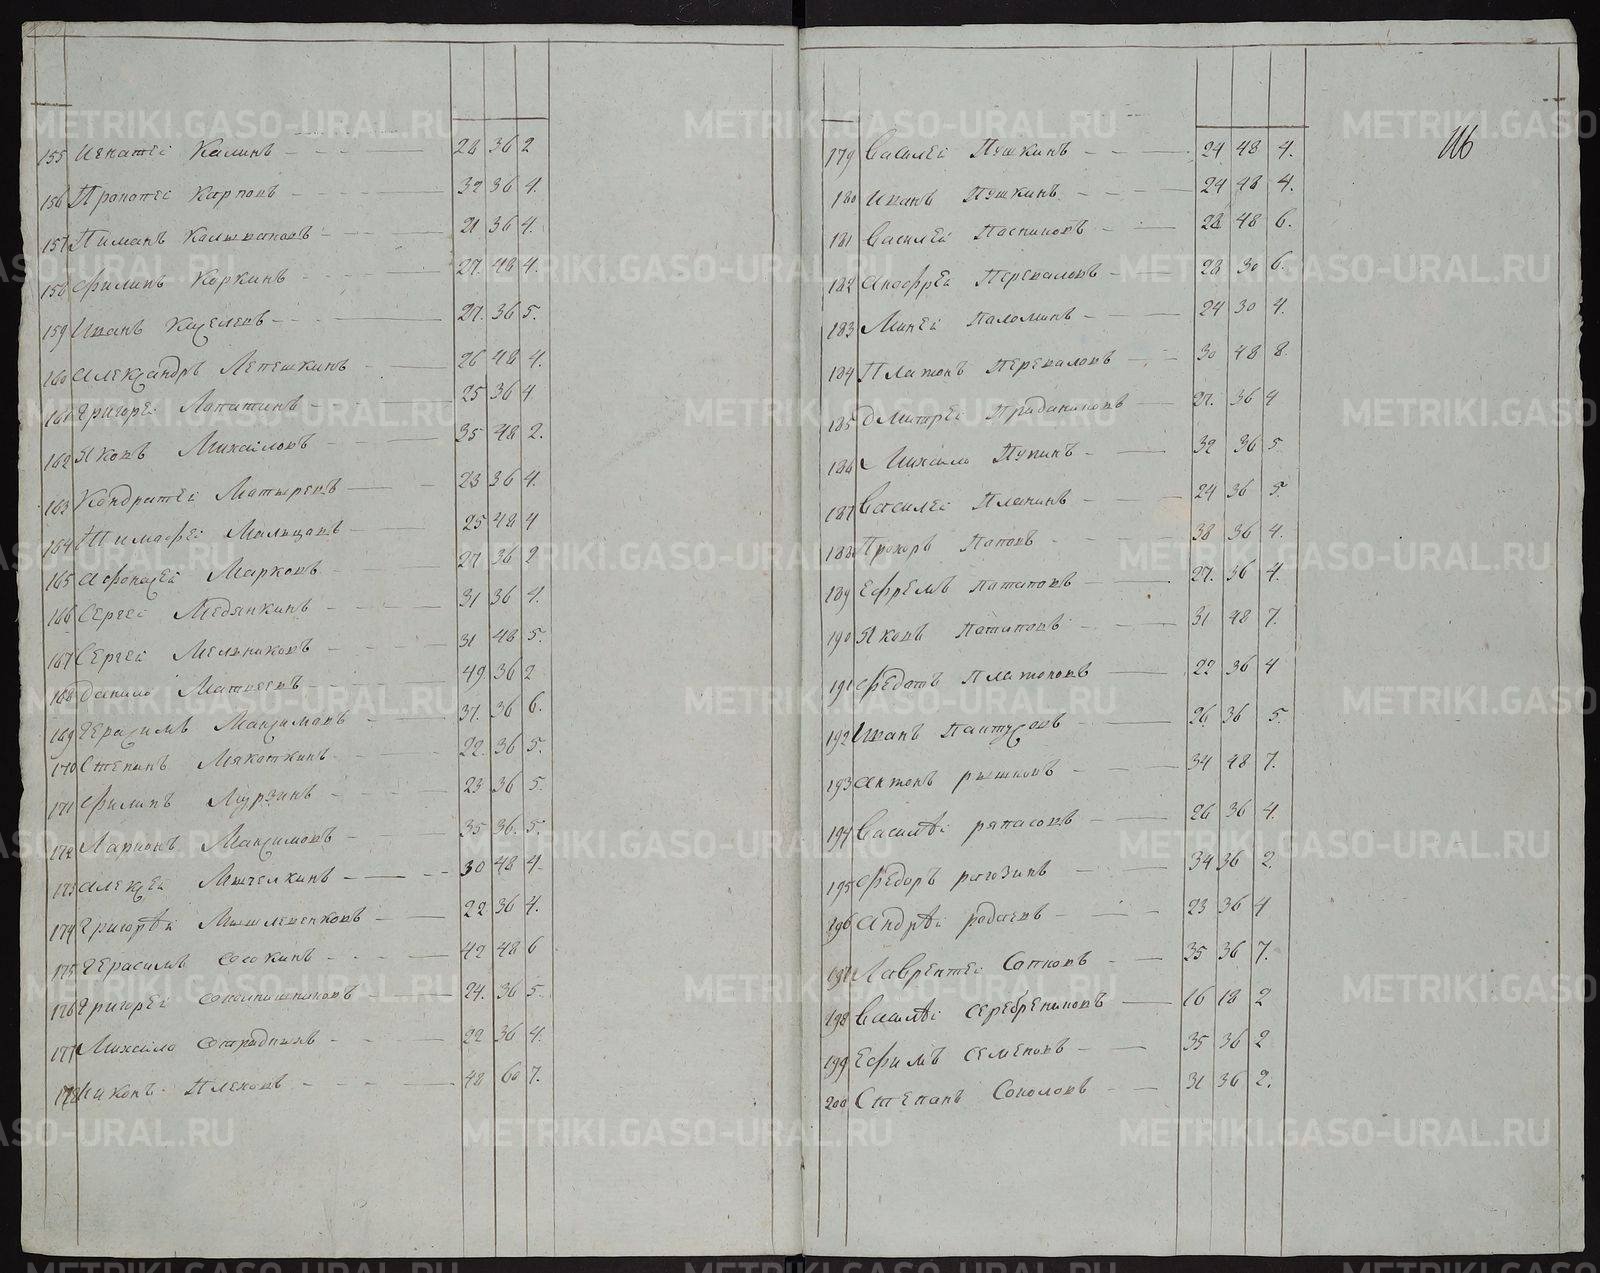 155 Игнатеи Калинъ 28 36 2
156 Прокопеи Карповъ 32 36 4.
157 Пиманъ 21 36 4.
158 Филипъ Коркинъ 27. 48 4.
159 Иванъ Киселевъ 27. 36 5.
160 Александръ Лепешкинъ 26 48 4.
161 Григореи Лапатинъ 25 36 4
162 Яковъ Михаиловъ 35 48 2.
163 Кондратеи Матыревъ 23 36 4.
164 Тимофеи Мальцовъ 25 48 4
165 Афонасеи Марковъ 27 36 2
166 Сергеи Медянкинъ 31 36 4.
167 Сергеи Мельниковъ 31 48 5.
168 Данило Матвеевъ 49 36 2
169 Герасимъ Максимовъ 37. 36 6.
170 Степанъ Мякоткинъ 22. 36 5.
171 Филипъ Мурзинъ 23 36 5.
172 Ларионъ Максимовъ 35 36. 5.
173 Алексеи Мычелкинъ 30 48 4.
174 Григореи Мышленковъ 22 36 4.
175 Герасимъ Сосокинъ 42 48 6
176 Григореи 24. 36 5.
177 Михаило 22 36 4.
178 Никонъ Пленовъ 48 60 7.
116
179 Василеи Пушкинъ 24 48 4.
180 Иванъ Пушкинъ 24 48 4.
181 Василеи Постниковъ 28 48 6.
182 Андреи Переваловъ 28 30 6.
183 Минеи Паломинъ 24 30 4.
184 Платонъ Переваловъ 30 48 8.
185 Дмитреи 27. 36 4
186 Михаило Пупинъ 32 36 5
187 Василеи Планинъ 24 36 5.
188 Прохоръ Поповъ 38 36 4.
189 Ефремъ Потаповъ 27. 36 4.
190 Яковъ Потаповъ 31 48 7.
191 Федотъ Платоновъ 22 36 4
192 Иванъ Пантусовъ 26 36 5.
193 Антонъ Рышковъ 34 48 7.
194 Василѣи Ряпасовъ 26 36 4.
195 Федоръ Рагозинъ 34 36 2.
196 Андрѣи Родаевъ 23 36 4
197 Лаврентеи Сотновъ 35 36 7.
198 Василѣи Серебрениковъ 16 18 2
199 Ефимъ Семеновъ 35 36 2
200 Степанъ Соколовъ 31 36 2.